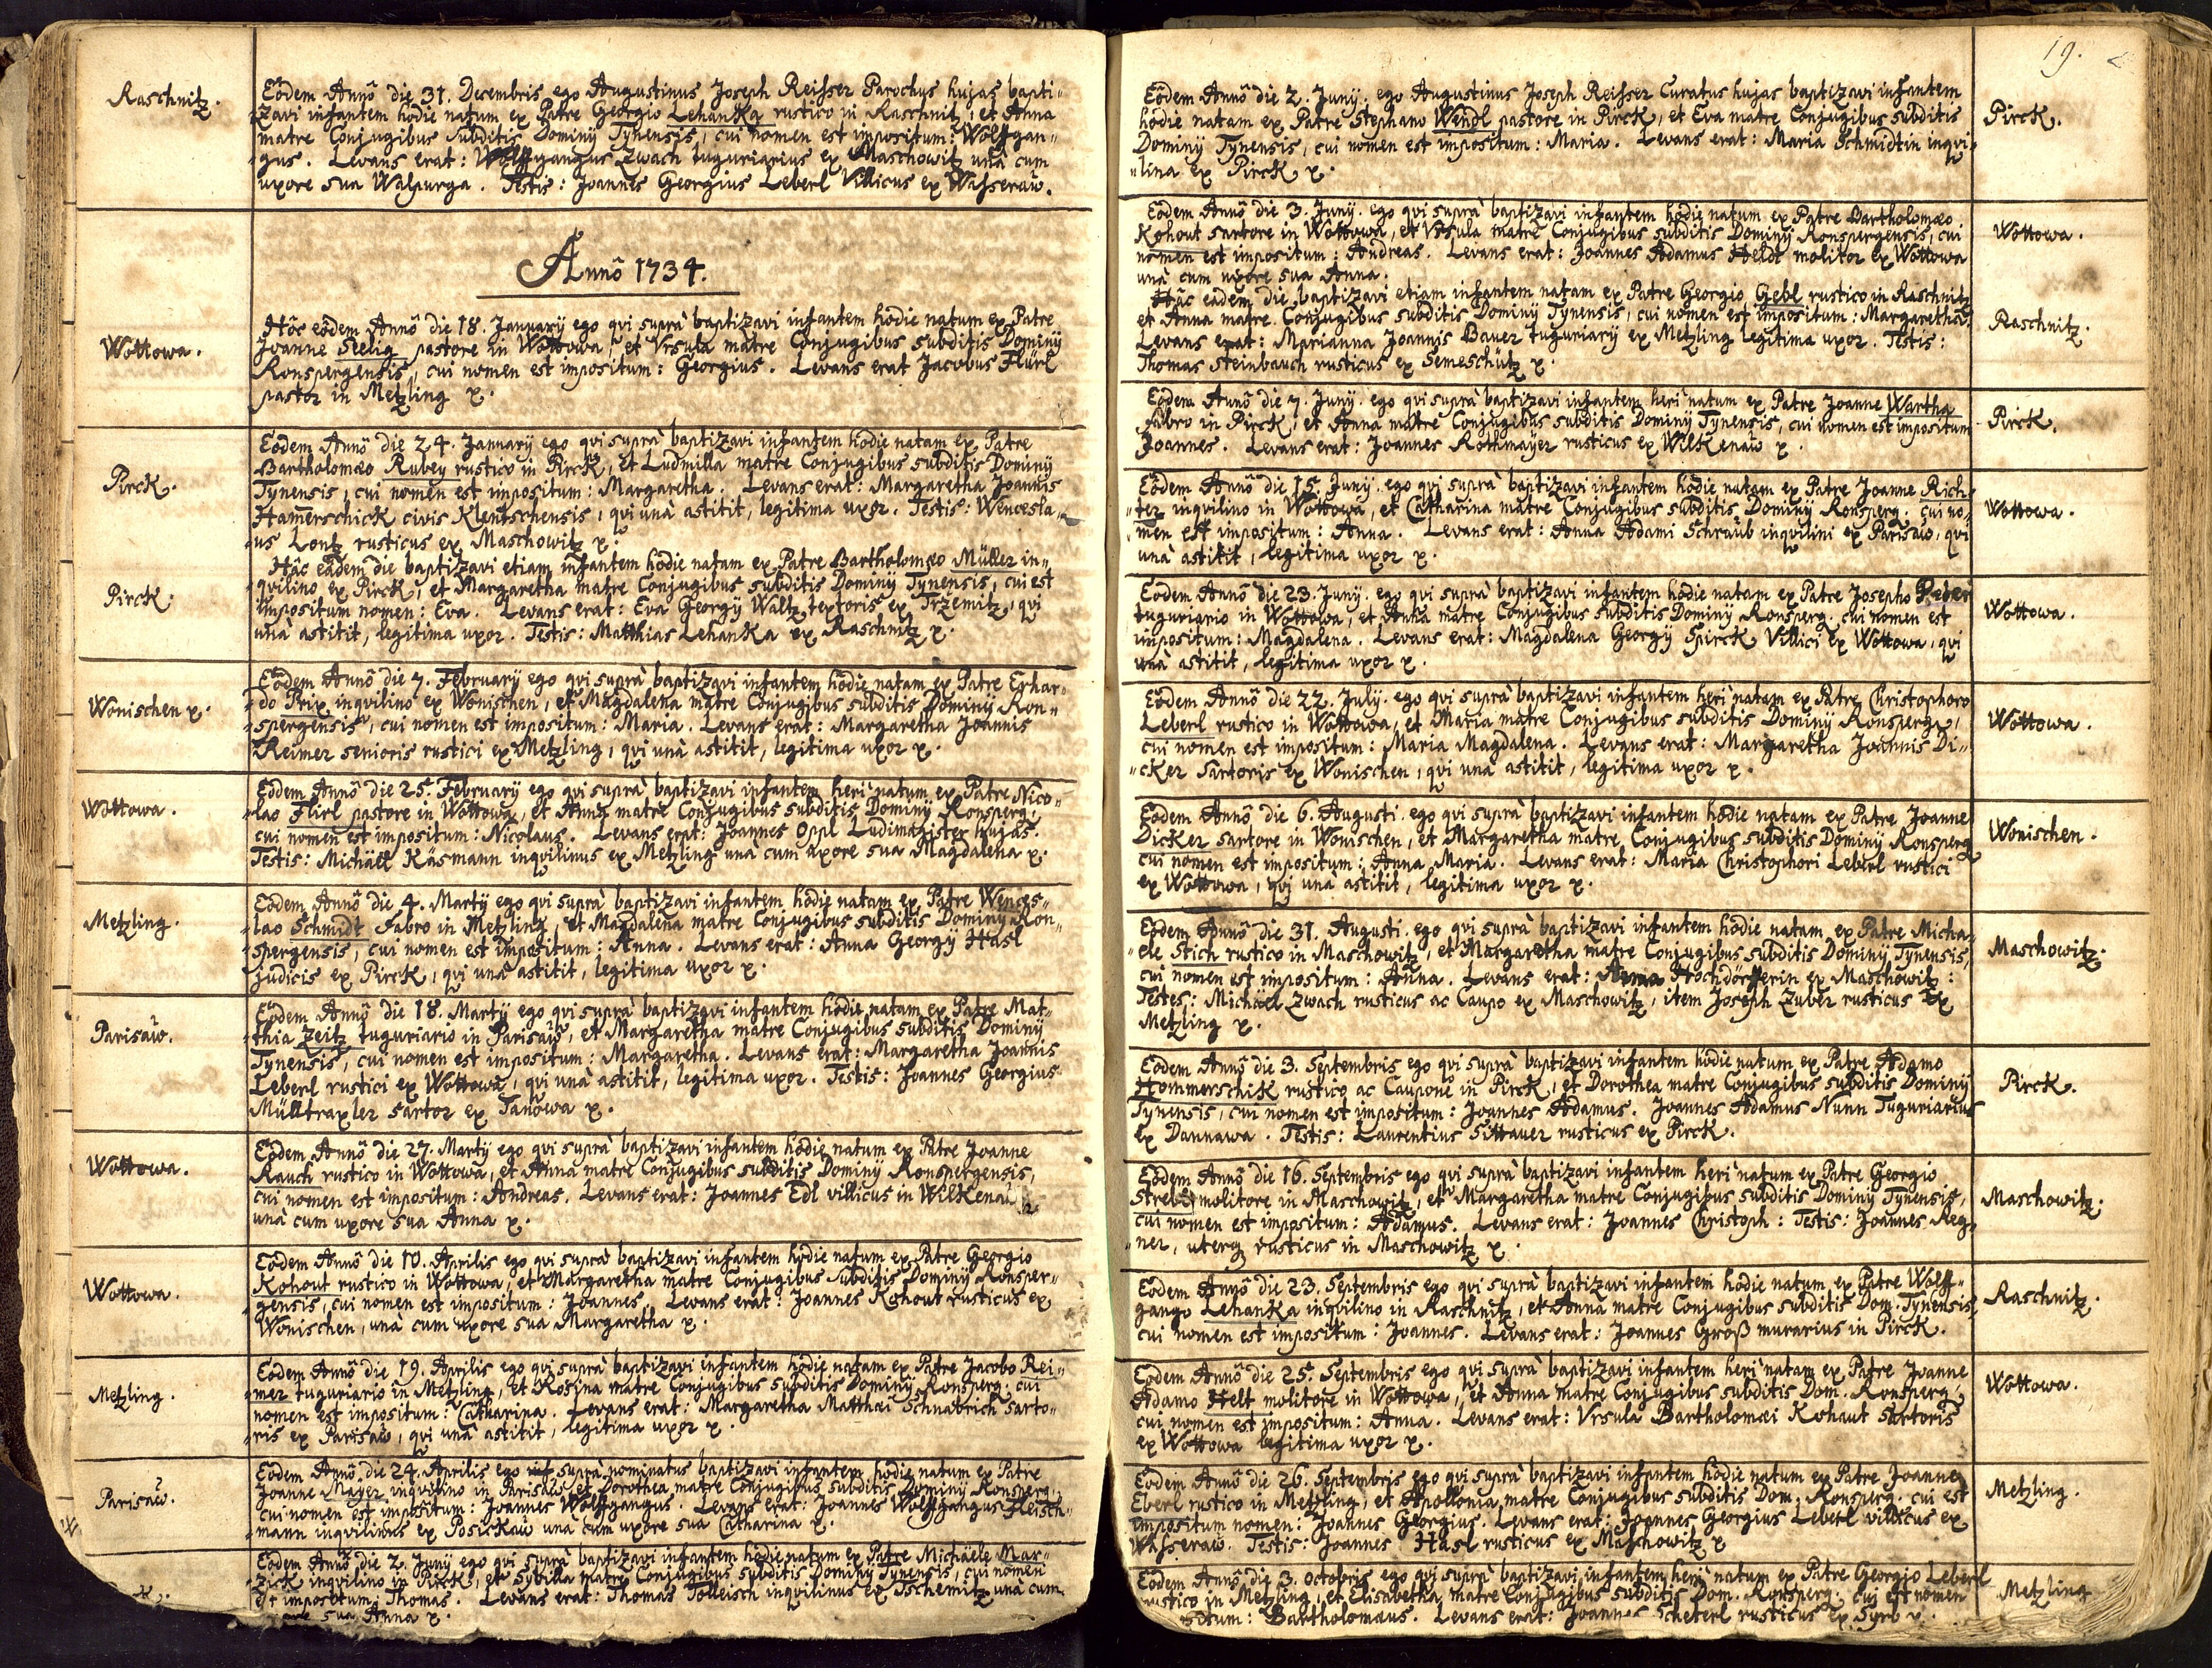 Raschnitz.
Eôdem Annô die 31. Decembris ego Augustinus Joseph Reisser Parochus hujas bapti„
zavi infantem hodie natum ex Patre Georgio Lehanka rustico in Raschnitz, et Anna
matre Conjugibus Subditis Dominÿ Tynensis, cui nomen est impositum: Wolffgan„
„gus. Levans erat: Wolffgangus Zwach tuguriarius ex Maschowitz unà cum
uxore sua Walpurga. Testis: Joannes Georgius Leberl Villicus ex Wasseraw.
Annô 1734.
Wottowa.
Hôc eôdem Annô die 18. Januarÿ ego qvi suprà baptizavi infantem hodie natum ex Patre
Joanne Seelig pastore in Wottowa, et Vrsula matre Conjugibus subditis Dominÿ
Ronspergensis, cui nomen est impositum: Georgius. Levans erat Jacobus Flürl
pastor in Metzling x.
Pirck.
Eôdem Annô die 24. Januarÿ ego qvi suprà baptizavi infantem hodie natam ex Patre
Bartholomæo Rubey rustico in Pirck, et Ludmilla matre Conjugibus subditis Dominÿ
Tynensis, cui nomen est impositum: Margaretha. Levans erat: Margaretha Joannis
Hamerschick civis Klentschensis, qvi unà astitit, legitima uxor. Testis: Wencesla„
„us Lontz rusticus ex Maschowitz x.
Pirck.
Hâc eâdem die baptizavi etiam infantem hodie natam ex Patre Bartholomæo Müller in„
qvilino ex Pirck, et Margaretha matre Conjugibus subditis Dominÿ Tynensis, cui est
impositum nomen: Eva. Levans erat: Eva Georgÿ Waltz textoris ex Tržemitz, qvi
unà astitit, legitima uxor. Testis: Matthias Lehanka ex Raschnitz x.
Wonischen x.
Eôdem Annô die 7. Februarÿ ego qvi suprà baptizavi infantem hodie natam ex Patre Erhar„
„do Prix inqvilino ex Wonischen, et Magdalena matre Conjugibus subditis Dominÿ Ron„
„spergensis, cui nomen est impositum: Maria. Levans erat: Margaretha Joannis
Reimer senioris rustici ex Metzling, qvi unà astitit, legitima uxor x.
Wottowa.
Eôdem Annô die 25. Februarÿ ego qvi suprà baptizavi infantem heri natum ex Patre Nico„
„lao Flirl pastore in Wottowa, et Anna matre Conjugibus subditis Dominÿ Ronsperg.
cui nomen est impositum: Nicolaus. Levans erat: Joannes Oppl Ludimagister hujas.
Testis: Michäel Käsmann inqvilinus ex Metzling unà cum uxore sua Magdalena x.
Metzling.
Eôdem Annô die 4. Martÿ ego qvi suprà baptizavi infantem hodie natam ex Patre Wences„
„lao Schmidt Fabro in Metzling, et Magdalena matre Conjugibus subditis Dominÿ Ron„
„spergensis, cui nomen est impositum: Anna. Levans erat: Anna Georgÿ Hasl
judicis ex Pirck, qvi unà astitit, legitima uxor x.
Parisaw.
Eôdem Annô die 18. Martÿ ego qvi suprà baptizavi infantem hodie natam ex Patre Mat„
„thia Zeitz tuguriario in Parisaw, et Margaretha matre Conjugibus subditis Dominÿ
Tynensis, cui nomen est impositum: Margaretha. Levans erat: Margaretha Joannis
Leberl rustici ex Wottowa, qvi unà astitit, legitima uxor. Testis: Joannes Georgius
Mülltraxler sartor ex Tanowa x.
Wottowa.
Eôdem Annô die 27. Martÿ ego qvi suprà baptizavi infantem hodie natum ex Patre Joanne
Rauch rustico in Wottowa, et Anna matre Conjugibus subditis Dominÿ Ronspergensis,
cui nomen est impositum: Andreas. Levans erat: Joannes Edl villicus in Wilkenaw
unà cum uxore sua Anna x.
Wottowa.
Eôdem Annô die 10. Aprilis ego qvi suprà baptizavi infantem hodie natum ex Patre Georgio
Kohout rustico in Wottowa, et Margaretha matre Conjugibus subditis Dominÿ Ronsper„
„gensis, cui nomen est impositum: Joannes. Levans erat: Joannes Kohout rusticus ex
Wonischen, unà cum uxore sua Margaretha x.
Metzling.
Eôdem Annô die 19. Aprilis ego qvi suprà baptizavi infantem hodie natam ex Patre Jacobo Rei„
„mer tuguriario in Metzling, et Rosina matre Conjugibus subditis Dominÿ Ronsperg. cui
nomen est impositum: Catharina. Levans erat: Margaretha Matthæi Schnabrich sarto„
„ris ex Parisaw, qvi unà astitit, legitima uxor x.
Parisaw.
Eôdem Annô die 24. Aprilis ego suprà nominatus baptizavi infantem hodie natum ex Patre
Joanne Mayer inqvilino in Parisaw, et Dorothea matre Conjugibus subditis Dominÿ Ronsperg.
cui nomen est impositum: Joannes Wolffgangus. Levans erat: Joannes Wolffgangus Fleisch„
„mann inqvilinus ex Posickaw unà cum uxore sua Catharina x.
Eôdem Annô die 2. Junÿ ego qvi suprà baptizavi infantem hodie natum ex Patre Michäele Mar„
„zick inqvilino in Pirck, et Sybilla matre Conjugibus subditis Dominÿ Tynensis, cui nomen
est impositum: Thomas. Levans erat: Thomas Tolleisch inqvilinus ex Tschemitz unà cum
sua Anna x.
19.
Eôdem Annô die 2. Junÿ. ego Augustinus Joseph Reisser Curatus hujas baptizavi infantem
hodie natam ex Patre Stephano Wendl pastore in Pirck, et Eva matre Conjugibus subditis
Dominÿ Tynensis, cui nomen est impositum: Maria. Levans erat: Maria Schmidtin inqvi„
„lina ex Pirck x.
Pirck.
Eôdem Annô die 3. Junÿ. ego qvi suprà baptizavi infantem hodie natum ex Patre Bartholomæo
Kohout sartore in Wottowa, et Vrsula matre Conjugibus subditis Dominÿ Ronspergensis, cui
nomen est impositum: Andreas. Levans erat: Joannes Adamus Heldt molitor ex Wottowa
unà cum uxore sua Anna.
Wottowa.
Hâc eâdem die baptizavi etiam infantem natam ex Patre Georgio Gebl rustico in Raschnitz
et Anna matre Conjugibus subditis Dominÿ Tynensis, cui nomen est impositum: Margaretha.
Levans erat: Marianna Joannis Bauer tuguriarÿ ex Metzling legitima uxor. Testis:
Thomas Steinbauch rusticus ex Semeschitz x.
Raschnitz.
Eôdem Annô die 7. Junÿ. ego qvi suprà baptizavi infantem heri natum ex Patre Joanne Wartha
Fabro in Pirck, et Anna matre Conjugibus subditis Dominÿ Tynensis, cui nomen est impositum
Joannes. Levans erat: Joannes Rothmayer rusticus ex Wilkenaw x.
Pirck.
Eôdem Annô die 15. Junÿ. ego qvi suprà baptizavi infantem hodie natam ex Patre Joanne Rich„
„ter inqvilino in Wottowa, et Catharina matre Conjugibus subditis Dominÿ Ronsperg. cui no„
„men est impositum: Anna. Levans erat: Anna Adami Schraub inqvilini ex Parisaw, qvi
unà astitit, legitima uxor x.
Wottowa.
Eôdem Annô die 23. Junÿ. ego qvi suprà baptizavi infantem hodie natam ex Patre Josepho
tuguriario in Wottowa, et Anna matre Conjugibus subditis Dominÿ Ronsperg. cui nomen est
impositum: Magdalena. Levans erat: Magdalena Georgÿ Spirck Villici ex Wottowa, qvi
unà astitit, legitima uxor x.
Wottowa.
Eôdem Annô die 22. Julÿ. ego qvi suprà baptizavi infantem heri natam ex Patre Christophoro
Leberl rustico in Wottowa, et Maria matre Conjugibus subditis Dominÿ Ronsperg.,
cui nomen est impositum: Maria Magdalena. Levans erat: Margaretha Joannis Di„
„cker sartoris ex Wonischen, qvi unà astitit, legitima uxor x.
Wottowa.
Eôdem Annô die 6. Augusti. ego qvi suprà baptizavi infantem hodie natam ex Patre Joanne
Dicker sartore in Wonischen, et Margaretha matre Conjugibus subditis Dominÿ Ronsperg
cui nomen est impositum: Anna Maria. Levans erat: Maria Christophori Leberl rustici
ex Wottowa, qvi unà astitit, legitima uxor x.
Wonischen.
Eôdem Annô die 31. Augusti. ego qvi suprà baptizavi infantem hodie natam ex Patre Micha„
„ele Stich rustico in Maschowitz, et Margaretha matre Conjugibus subditis Dominÿ Tynensis,
cui nomen est impositum: Anna. Levans erat: Anna Hochdörfferin ex Maschowitz:
Testes: Michael Zwach rusticus ac Caupo ex Maschowitz, item Joseph Zuber rusticus ex
Metzling x.
Maschowitz.
Eôdem Annô die 3. Septembris ego qvi suprà baptizavi infantem hodie natum ex Patre Adamo
Hommerschik rustico ac Caupone in Pirck, et Dorothea matre Conjugibus subditis Dominÿ
Tynensis, cui nomen est impositum: Joannes Adamus. Joannes Adamus Nunn Tuguriarius
ex Dannawa. Testis: Laurentius Sittauer rusticus ex Pirck.
Pirck.
Eôdem Annô die 16. Septembris ego qvi suprà baptizavi infantem heri natum ex Patre Georgio
molitore in Maschowitz, et Margaretha matre Conjugibus subditis Dominÿ Tynensis,
cui nomen est impositum: Adamus. Levans erat: Joannes Christoph: Testis: Joannes Reg„
„ner, uterq rusticus in Maschowitz x.
Maschowitz.
Eôdem Annô die 23. Septembris ego qvi suprà baptizavi infantem hodie natum ex Patre Wolff„
gango Lehanka inqvilino in Raschnitz, et Anna matre Conjugibus subditis Dom. Tynensis,
cui nomen est impositum: Joannes. Levans erat: Joannes Groß murarius in Pirck.
Raschnitz.
Eôdem Annô die 25. Septembris ego qvi suprà baptizavi infantem heri natam ex Patre Joanne
Adamo Helt molitore in Wottowa, et Anna matre Conjugibus subditis Dom. Ronsperg.
cui nomen est impositum: Anna. Levans erat: Vrsula Bartholomæi Kohaut sartoris
ex Wottowa legitima uxor x.
Wottowa.
Eôdem Annô die 26. Septembris ego qvi suprà baptizavi infantem hodie natum ex Patre Joanne
Eberl rustico in Metzling, et Apollonia matre Conjugibus subditis Dom. Ronsperg. cui est
impositum nomen: Joannes Georgius. Levans erat: Joannes Georgius Leberl villicus ex
Wasseraw. Testis: Joannes Hasl rusticus ex Maschowitz x
Metzling.
Eôdem Annô die 3. Octobris ego qvi suprà baptizavi infantem heri natum ex Patre Georgio Leberl
rustico in Metzling, et Elisabetha matre Conjugibus subditis Dom. Ronsperg. cui est nomen
Bartholomæus. Levans erat: Joannes Scheterl rusticus ex Syrb x.
Metzling